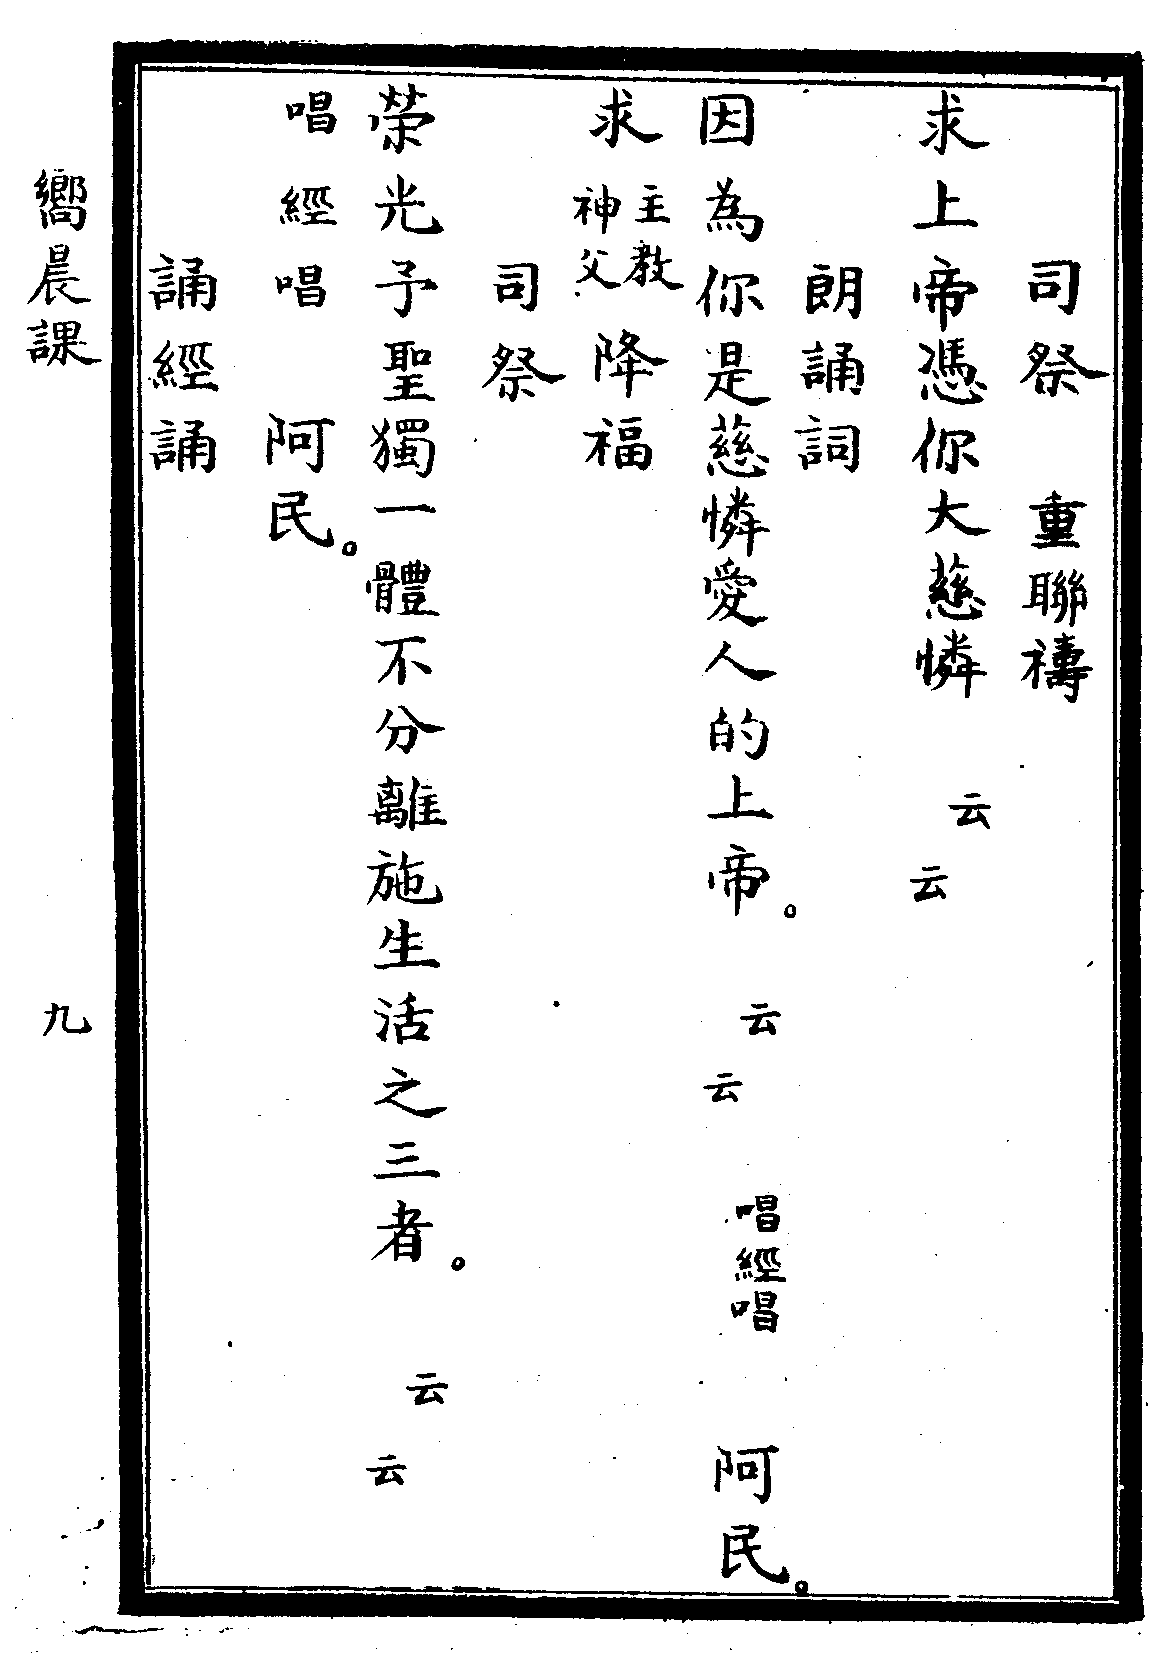 司祭　重聯禱
求上帝憑你大慈憐　云云
朗誦詞
因為你是慈憐愛人的上帝。　云云　唱經唱　阿民。
求主教神父降福
司祭
榮光予聖獨一體不分離施生活之三者。　云云
唱經唱　阿民。
誦經誦
嚮晨課　九